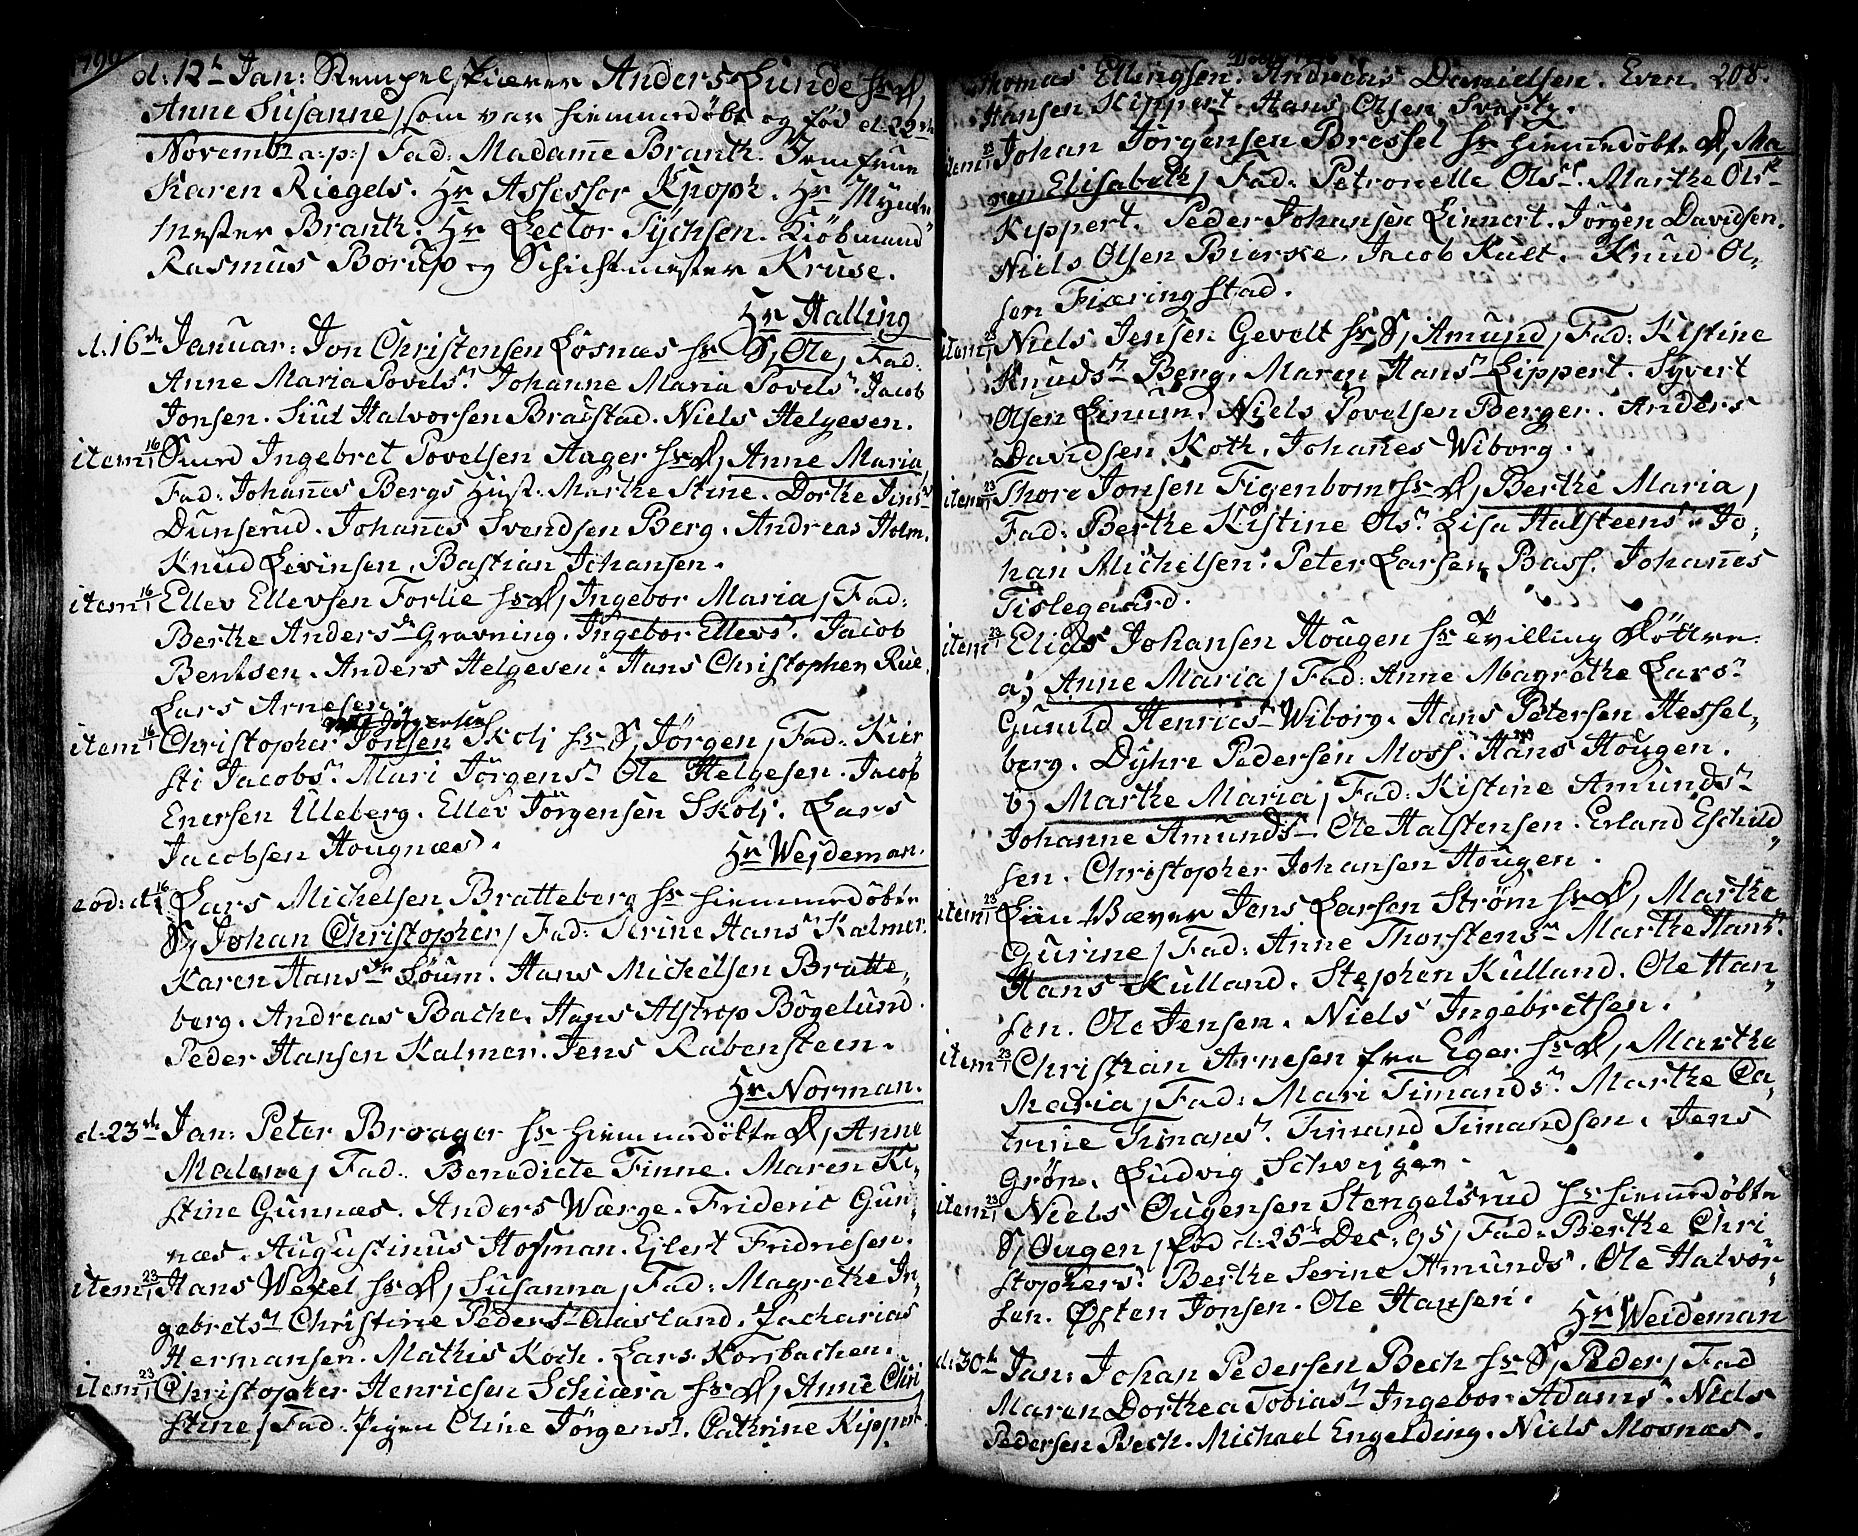 d. 12t Jan: Stempelskierer Anders Lunde hs D,
Anne Susanne, som var hiemmedöbt og fød d. 22de
Novembr a: p:/ Fad: Madame Branth. Jomfrue
Karen Riegels. Hr Assessor Knoph. Hr Mynt
Mester Branth. Hr Lector Tychsen. Kiöbmand
Rasmus Borup og Schichtmester Kruse.
Hr Halling
d. 16de Januar: Jon Christensen Losnæs hs S, Ole, Fad:
Anne Maria Povelsn Johanne Maria Povelsn Jacob
Jonsen. Siul Halvorsen Braastad. Niels Helgesen.
item 16/1 Smed Ingebret Povelsen Hager hs D, Anne Maria,
Fad: Johannes Bergs Hust: Marthe Stine. Dorthe Jensd
Dunserud. Johannes Svendsen Berg. Andreas Holm.
Knud Levinsen, Bastian Johansen.
item 16/1 Ellev Ellevsen Forlie hs D, Ingebor Maria, Fad:
Berthe Andersdr Gravning. Ingebor Ellevsn. Jacob
Bentsen. Anders Helgesen. Hans Christopher Rue.
Lars Arnesen.
Jørgensen
item 16/1 Christopher Jonsen Skolj hs S, Jörgen, Fad: Kier
sti Jacobsn. Mari Jörgensn Ole Helgesen. Jacob
Enersen Ulleberg. Ellev Jörgensen Skolj. Lars
Jacobsen Hougnæs.
Hr Wejdeman.
eod: d: 16/1 Lars Michelsen Bratteberg hs hiemmedöbte
S, Johan Christopher, Fad: Serine Hansn Kalmer.
Karen Hansdr Soum. Hans Michelsen Bratte,
berg. Andreas Bache. Hans Alstrop Bögelund.
Peder Hansen Kalmer. Jens Rabensteen.
Hr Norman.
d. 23de Jan: Peter Broager hs hiemmedöbte D, Anne
Malene, Fad: Benedicte Finne. Maren Ki,
stine Gunnæs. Anders Wærge. Frideric Gun,
næs. Augustinus Hofman. Ejlert Fridricsen.
item 23/1 Hans Wexel hs D, Susanna, Fad: Magrethe In,
gebretsn Christine Peders Aasland. Zacharias
Hermansen. Mathis Koch. Lars Korsbachen.
item 23/1 Christopher Henricsen Schiæra hs D, Anne Chri
stine, Fad: Pigen Eline Jörgensn. Cathrine Kippert.
Thomas Ellingsen. Andreas Danielsen. Even 208.
Hansen Kippert. Hans Olsen Svartz.
item 23/1 Johan Jörgensen Brossel hs hiemmedöbte D, Ma
ren Elisabeth, Fad: Petronelle Olsn. Marthe Olsn
Kippert. Peder Johansen Linnert. Jörgen Davidsen.
Niels Olsen Bierke. Jacob Kult. Knud Ol,
sen Fiæringstad.
item 23/1 Niels Jensen Gevelt hs S, Amund, Fad: Kistine
Knudsn Berg. Maren Hansn Lippert. Syvert
Olsen Linum. Niels Povelsen Berger. Anders
Davidsen Koth. Johannes Wiborg.
item 23/1 Thore Jonsen Figenbom hs D, Berthe Maria,
Fad: Berthe Kistine Olsn. Lisa Halsteens. Jo,
han Michelsen. Peter Larsen Bass. Johannes
Tislegaard.
item 23/1 Elias Johansen Hougen hs Tvilling Döttre
a, Anne Maria, Fad: Anne Magrethe Larsn
Gunild Henrics Wiborg. Hans Petersen Hessel,
berg. Dyhre Pedersen Moss. Hans Hougen.
b, Marthe Maria, Fad: Kistine Amundsn
Johanne Amundsn Ole Halstensen. Erland Eschild,
sen. Christopher Johansen Hougen.
item 23/1 Lin Væver Jens Larsen Strøm hs D, Marthe
Gurine, Fad: Anne Thorstensn Marthe Hansn.
Hans Kulland. Stephen Kulland. Ole Han,
sen. Ole Jensen. Niels Ingebretsen.
item 23/1 Christian Arnesen fra Eger hs D, Marthe
Maria, Fad: Mari Timandsn. Marthe Ca,
trine Timansn. Timand Timandsen. Jens
Grön. Ludvig Schvejger.
item 23/1 Niels Ougensen Stengelsrud hs hiemmedöbte
S, Ougen, fød d: 25t Dec. 95, Fad: Berthe Chri
stophersn. Berthe Serine Amundsn. Ole Halvor,
sen. Østen Jonsen. Ole Hansen.
Hr Weideman
d. 30t Jan: Johan Pedersen Bech hs S, Peder, Fad
Maren Dorthea Tobiasn Ingebor Adamsn. Niels
Pedersen Bech. Michael Engelding. Niels Mosnæs.